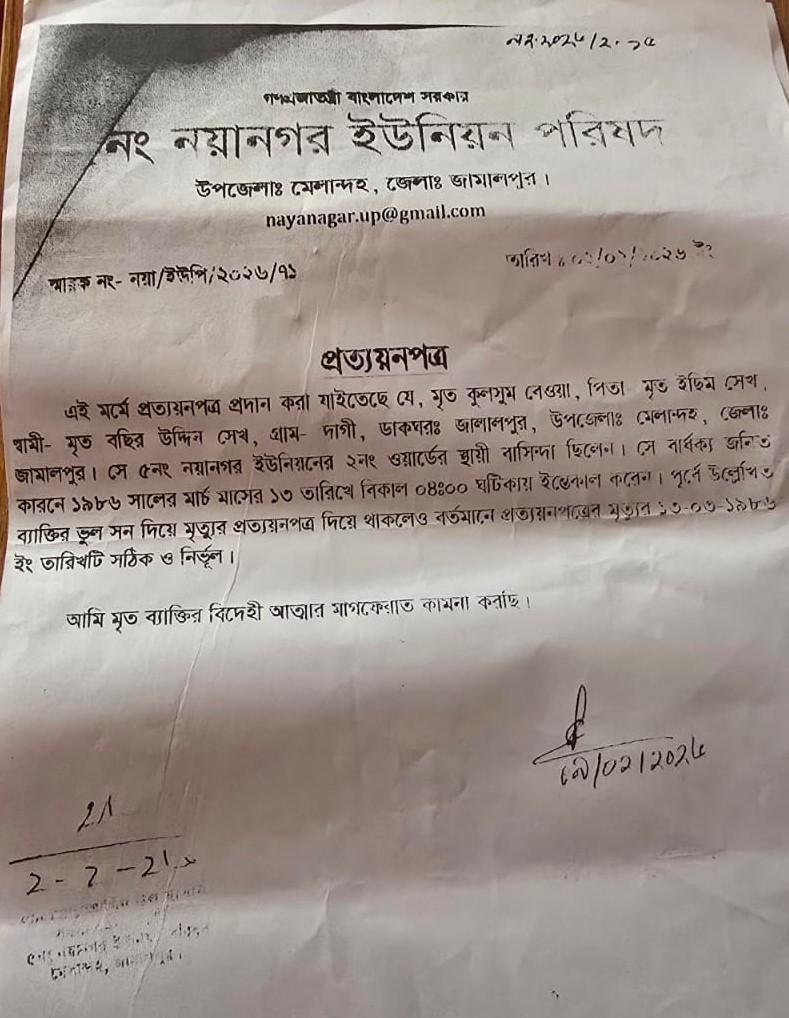 গণপ্রজাতন্ত্রী বাংলাদেশ সরকার
নং নয়ানগর ইউনিয়ন পরিষদ
উপজেলাঃ মেলান্দহ, জেলাঃ জামালপুর।
nayanagar.up@gmail.com
তারিখ
স্মারক নং- নয়া/ইউপি/২০২৬/৭১
প্রত্যয়নপত্র
এই মর্মে প্রত্যয়নপত্র প্রদান করা যাইতেছে যে, মৃত কুলসুম বেওয়া, পিতা- মৃত ইছিম সেখ,
স্বামী- মৃত বছির উদ্দিন সেখ, গ্রাম- দাগী, ডাকঘরঃ জালালপুর, উপজেলাঃ মেলান্দহ, জেলাঃ
জামালপুর। সে ৫নং নয়ানগর ইউনিয়নের ২নং ওয়ার্ডের স্থায়ী বাসিন্দা ছিলেন। সে বার্ধক্য জনিত
কারনে ১৯৮৬ সালের মার্চ মাসের ১৩ তারিখে বিকাল ০৪ঃ০০ ঘটিকায় ইন্তেকাল করেন। পূর্বে উল্লেখিত
ব্যাক্তির ভুল সন দিয়ে মৃত্যুর প্রত্যয়নপত্র দিয়ে থাকলেও বর্তমানে প্রত্যয়নপত্রের মৃত্যুর ১৩-০৩-১৯৮৬
ইং তারিখটি সঠিক ও নির্ভূল।
আমি মৃত ব্যাক্তির বিদেহী আত্মার মাগফেরাত কামনা করছি।